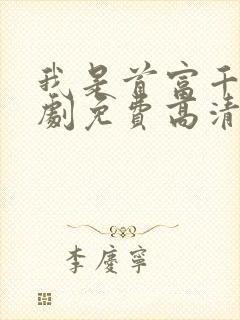 我是首富千
劇免費高清
李慶寧